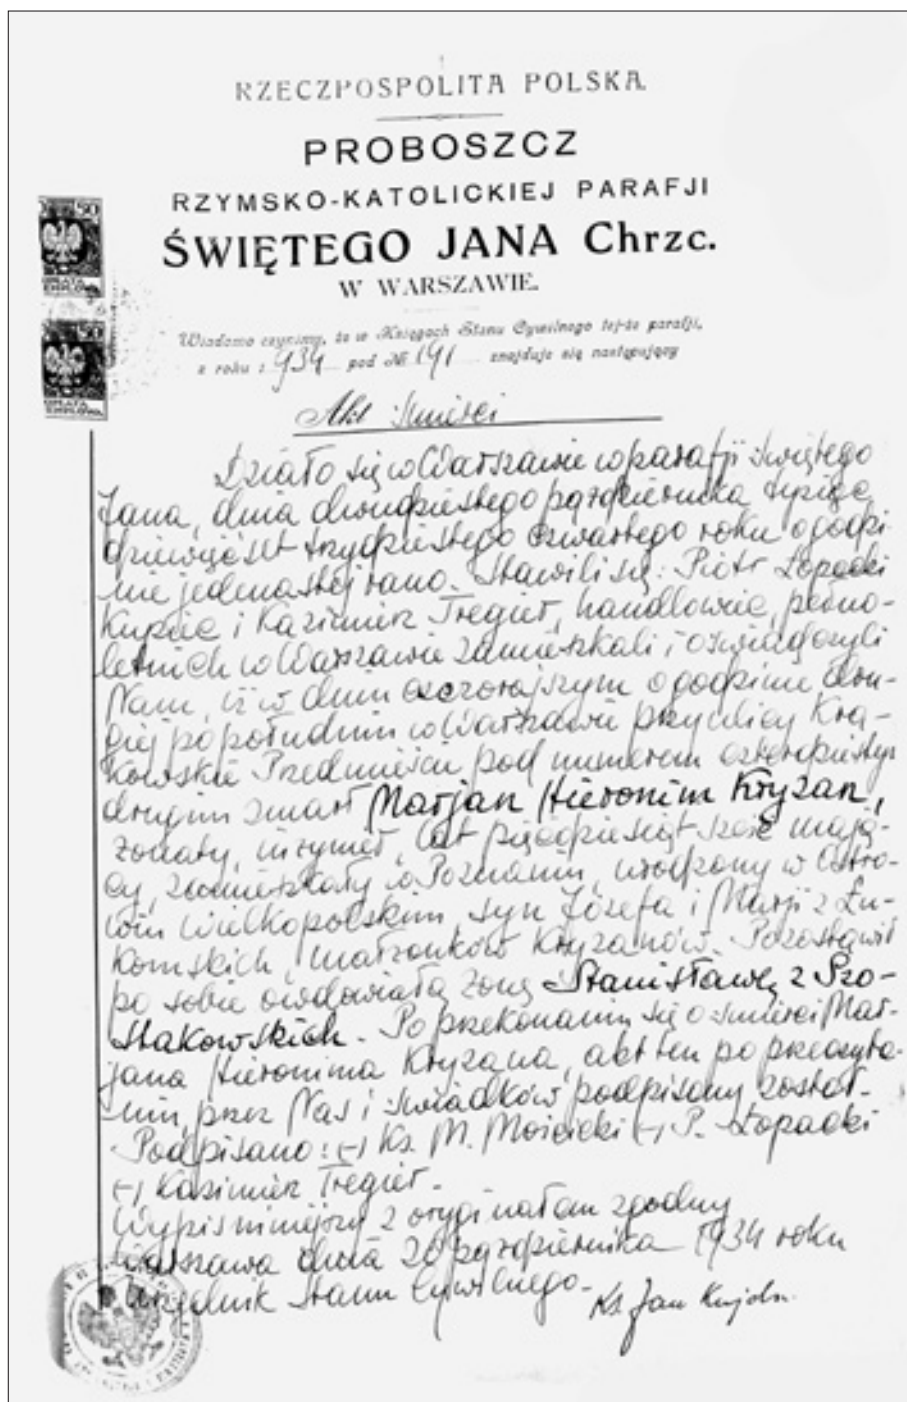 RZECZPOSPOLITA POLSKA
PROBOSZCZ
RZYMSKO-KATOLICKIEJ PARAFJI
ŚWIĘTEGO JANA Chrzc.
W WARSZAWIE.
Wiadomo czynimy, że w Księgach Stanu Cywilnego tej-że parafji,
z roku 1934 pod № 191 znajduje się następujący
50
OPŁATA
STEMPLOWA
50
OPŁATA
STEMPLOWA
Akt śmierci
Działo się w Warszawie w parafji świętego
Jana, dnia dwudziestego października tysiąc
dziewięćset trzydziestego czwartego roku o godzi
nie jedenastej rano. Stawili się: Piotr Łopacki
kupiec i Kazimierz Tregier, handlowiec, pełno-
letnich w Warszawie zamieszkali i oświadczyli
Nam, iż w dniu wczorajszym o godzinie dru-
giej po południu w Warszawie przy ulicy Kra-
kowskie Przedmieście pod numerem czterdziestym
drugim zmarł Marjan Hieronim Kryzan,
żonaty, inżynier, lat pięćdziesiąt sześć mają-
cy, zamieszkały w Poznaniu, urodzony w Ostro-
wiu Wielkopolskim, syn Józefa i Marji z Łu-
komskich, małżonków Kryzanów. Pozostawił
po sobie owdowiałą żonę Stanisławę z Szo-
stakowskich. Po przekonaniu się o śmierci Mar-
jana Hieronima Kryzana, akt ten po przeczyta-
niu, przez Nas i świadków podpisany został.-
Podpisano: (-) Ks. M. Mościcki (-) P. Łopacki
(-) Kazimierz Tregier.-
Wypis niniejszy z oryginałem zgodny
Warszawa dnia 20 października 1934 roku
Urzędnik Stanu Cywilnego.-
Ks. Jan